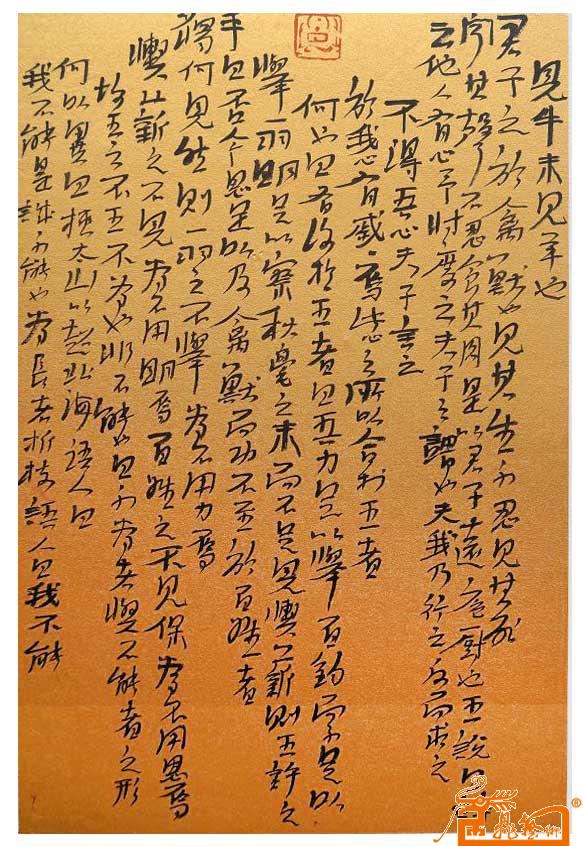 見牛未見羊也
君子之於禽獸也見其生不忍見其死
其聲不忍食其肉是以君子遠庖廚也王說曰詩
云他人有心予忖度之夫子之謂也夫我乃行之反而求之
不得吾心夫子言之
於我心有戚焉之所以合於王者
何也曰有復於王者曰吾力足以舉百鈞而不足以
舉一羽明足以察秋毫之末而不見輿薪則王許之
乎曰否今恩足以及禽獸而功不至於百姓者
獨何然則一羽之不舉為不用力焉
輿薪之不見為不用明焉百姓之不見保為不用恩焉
故王之不王不為也非不能也曰不為者與不能者之形
何以異曰挾太山以超北海語人曰
我不能是誠不能也為長者折枝語人曰我不能